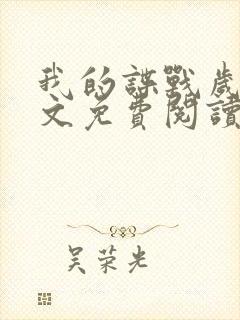 我的諜戰歲
文免費閱讀
吴荣光